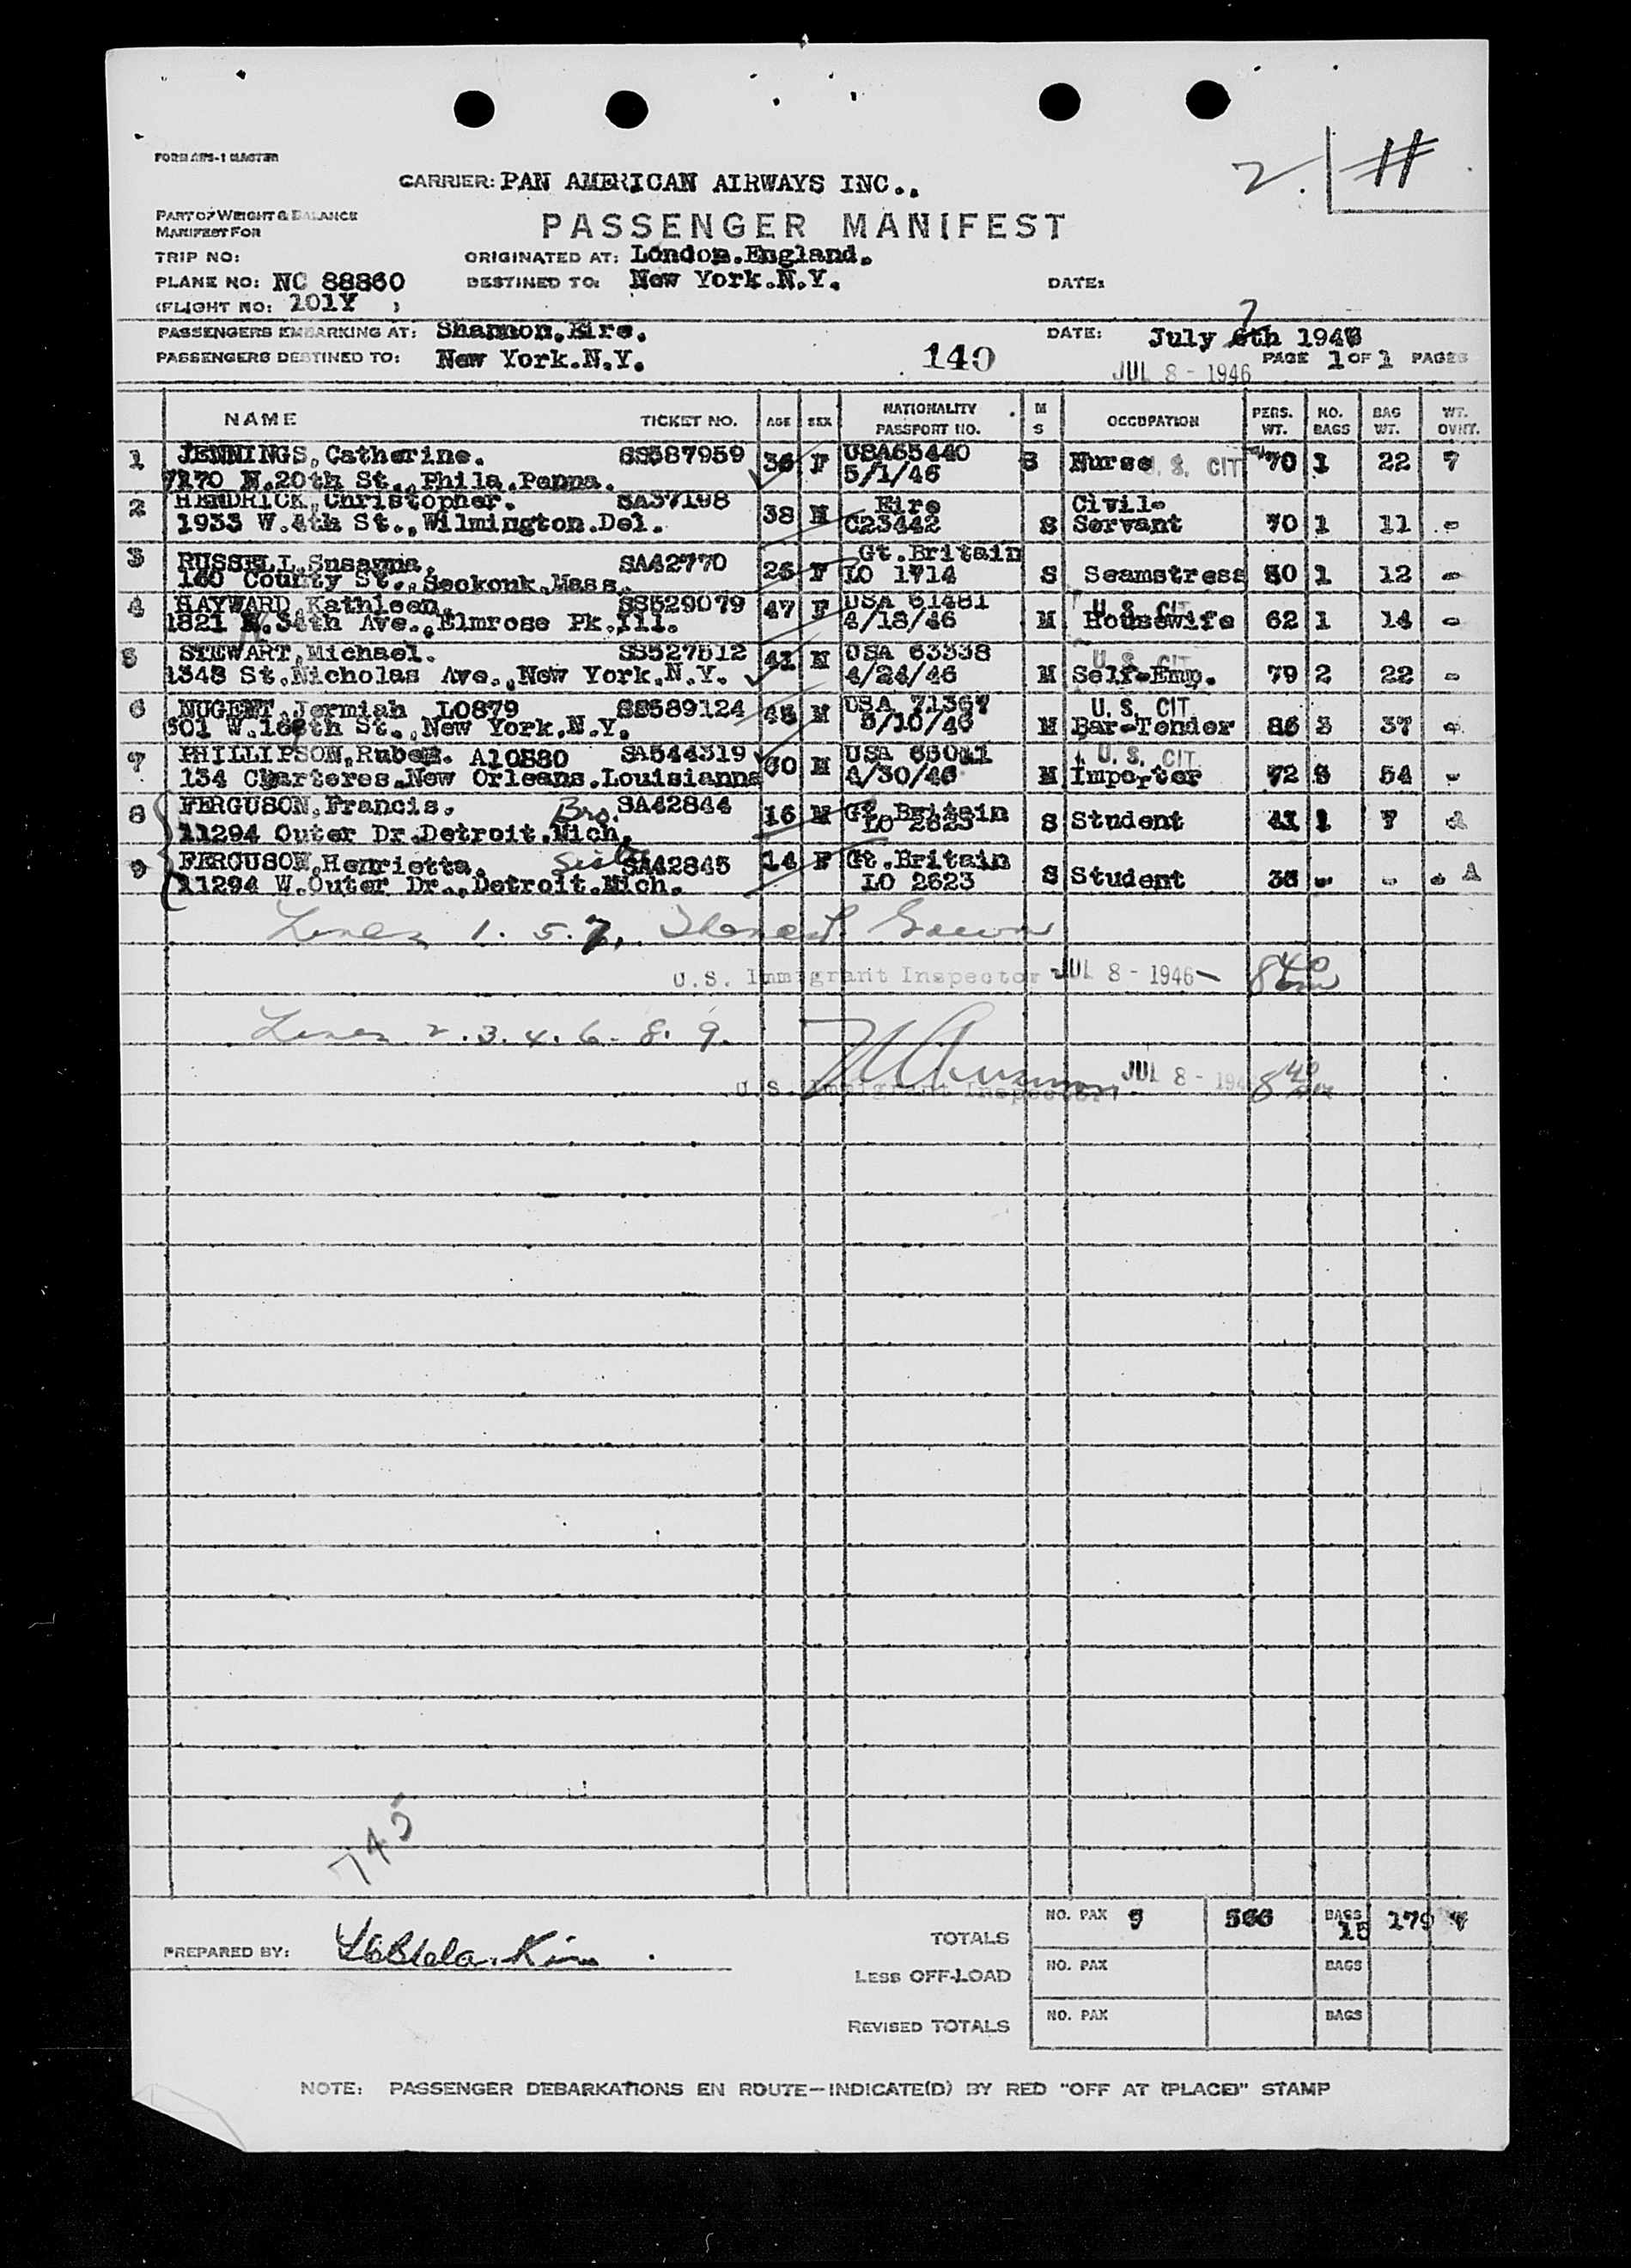 FORM AFS-1 MASTER
2. 11
CARRIER: PAN AMERICAN AIRWAYS INC..
PART OF WEIGHT & BALANCE
MANIFEST FOR
PASSENGER MANIFEST
TRIP NO: ORIGINATED AT: London.England.
PLANE NO: NC 88860 DESTINED TO: New York.N.Y. DATE:
(FLIGHT NO: 101Y )
PASSENGERS EMBARKING AT: Shannon.Eire. DATE: July 6th 7 1946
PASSENGERS DESTINED TO: New York.N.Y. 140 JUL 8 - 1946 PAGE 1 OF 1 PAGES
NAME TICKET NO. AGE SEX NATIONALITY PASSPORT NO. M S OCCUPATION PERS. WT. NO. BAGS BAG WT. WT. OVHT.
1 JENNINGS,Catherine. SS587959 36 F USA65440 S Nurse U. S. CIT 70 1 22 7
7170 N.20th St.,Phila.Penna. 5/1/46
2 HENDRICK,Christopher. SA37198 38 M Eire Civil-
1933 W.4th St.,Wilmington.Del. C23442 S Servant 70 1 11 -
3 RUSSELL,Susanna. SA42770 25 F Gt.Britain
160 County St.,Seekonk,Mass. LO 1714 S Seamstress 50 1 12 -
4 HAYWARD,Kathleen. SS529079 47 F USA 61481 U. S. CIT
1821 N.34th Ave.,Elmrose Pk.Ill. 4/18/46 M Housewife 62 1 14 -
5 STEWART,Michael. SS527512 41 M USA 63338 U. S. CIT
1348 St.Nicholas Ave.,New York.N.Y. 4/24/46 M Self-Emp. 79 2 22 -
6 NUGENT,Jermiah LO879 SS589124 45 M USA 71367 U. S. CIT
501 W.168th St.,New York.N.Y. 5/10/46 M Bar-Tender 86 3 37 -
7 PHILLIPSON,Ruben. A10580 SA544319 60 M USA 65041 U. S. CIT
134 Charteres.New Orleans.Louisianna 4/30/46 M Importer 72 5 54 -
8 FERGUSON,Francis. Bro. SA42844 16 M Gt.Britain
11294 Outer Dr.Detroit.Mich. LO 2623 S Student 41 1 7
9 FERGUSON,Henrietta. Sister SA42845 14 F Gt.Britain
11294 W.Outer Dr.,Detroit.Mich. LO 2623 S Student 36 - - -
Lines 1. 5. 7.
U.S. Immigrant Inspector JUL 8 - 1946 - 8 40
Lines 2. 3. 4. 6. 8. 9.
U.S. Immigrant Inspector JUL 8 - 194 8 40
745
PREPARED BY:
TOTALS NO. PAX 9 566 BAGS 15 179 7
LESS OFF-LOAD NO. PAX BAGS
REVISED TOTALS NO. PAX BAGS
NOTE: PASSENGER DEBARKATIONS EN ROUTE—INDICATE(D) BY RED "OFF AT (PLACE)" STAMP